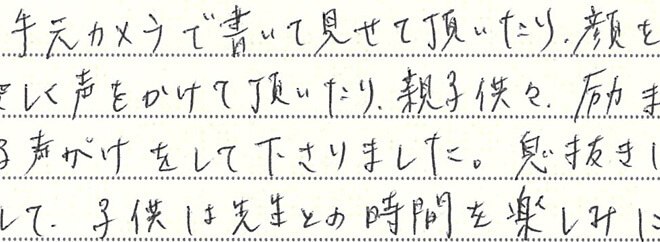 手元カメラで書いて見せて頂いたり、顔を
しく声をかけて頂いたり、親子供々、励ま
る声がけをして下さりました。息抜きし
して、子供は先生との時間を楽しみに